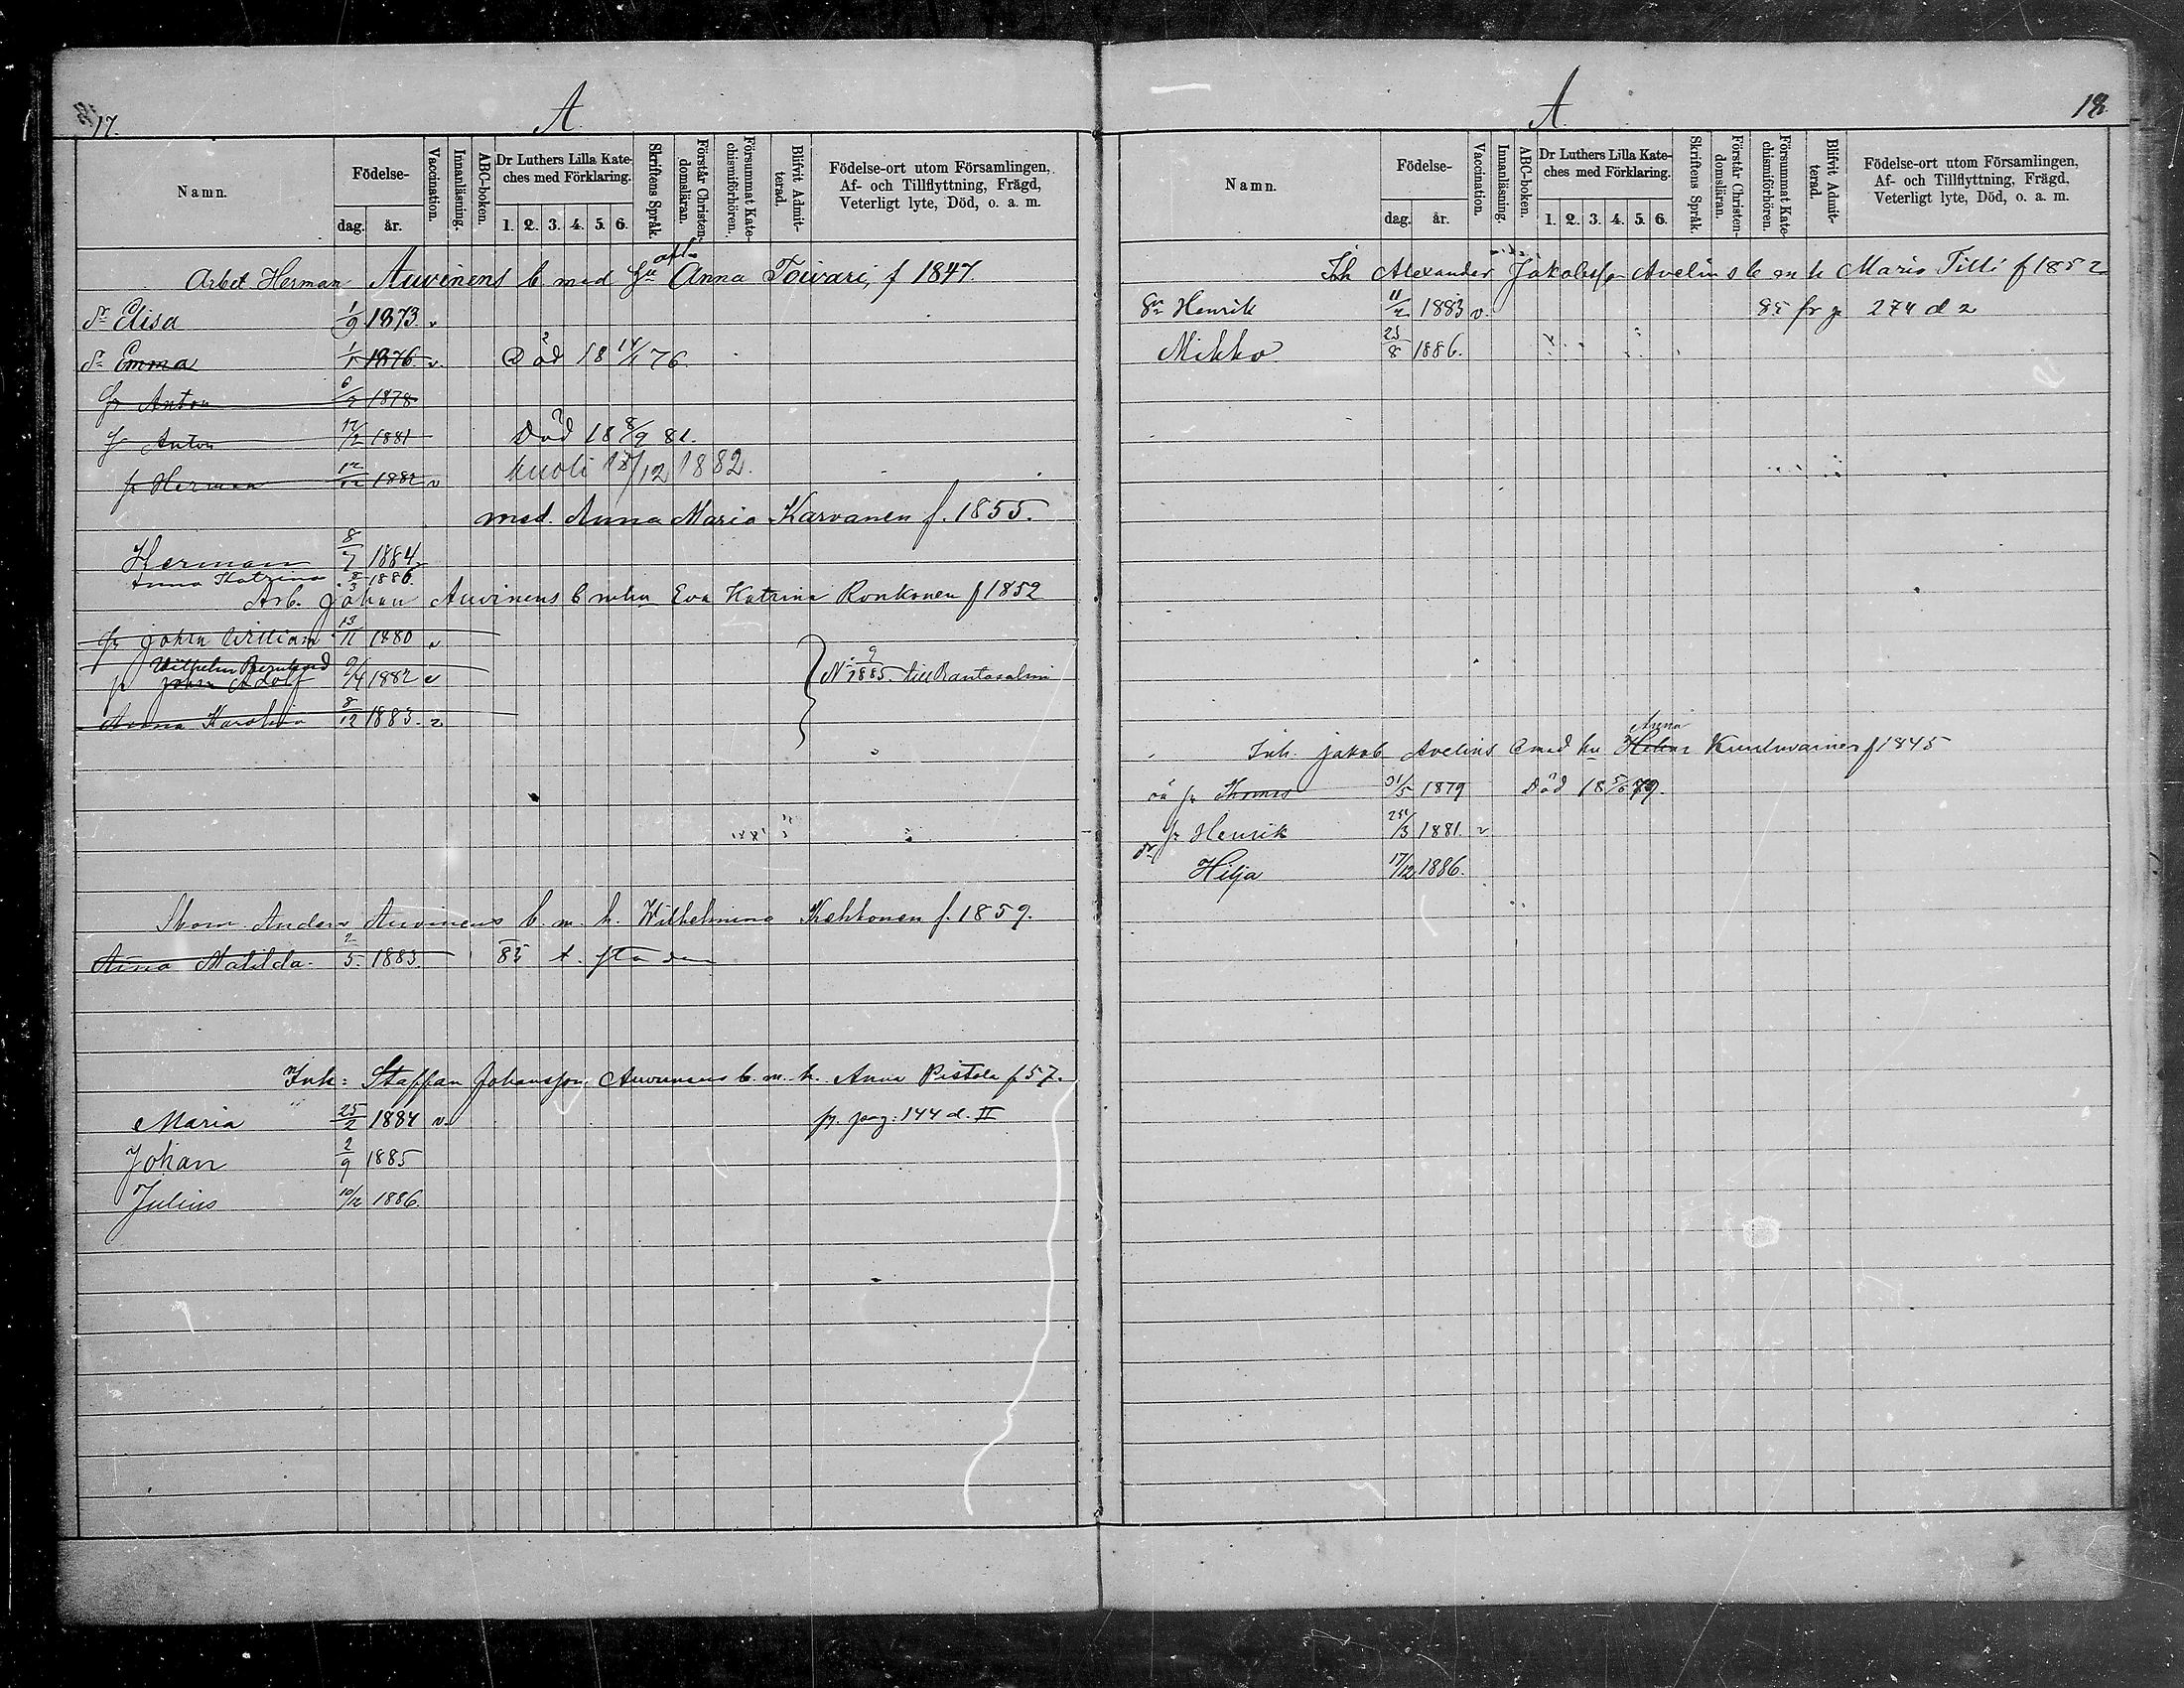 17.
A
Namn.
Födelse-
dag.
år.
Vaccination.
Innanläsning.
ABC-boken.
Dr Luthers Lilla Kate-
ches med Förklaring.
1. 2. 3. 4. 5. 6.
Skriftens Språk.
Förstår Christen-
domsläran.
Försummat Kate-
chismiförhören.
Blifvit Admit-
terad.
Födelse-ort utom Församlingen,
Af- och Tillflyttning, Frägd,
Veterligt lyte, Död, o. a. m.
afl.
Arbet Herman Auvinens b med Anna Toivari, f 1847.
Elisa 1/9 1873. v
Emma 1/1 1876. v. Död 18 14/1 76.
Anton 6/7 1878
Anton 17/2 1881 Död 18 8/9 81.
Herman 12/12 1882 v kuoli 18/12 1882.
med. Anna Maria Karvanen f. 1855.
Herman 8/7 1884
Anna Katrina 8/3 1886.
Arb. Johan Auvinens b m hu Eva Katrina Ronkonen f 1852
Johan William 13/11 1880 v
Wilhelm Bernhard
Johan Adolf 9/4 1882 v N: 9/1885. till Rantasalmi
Anna Karolina 8/12 1883. v
Anders Auvinens b. m. h. Wilhelmina Kehkonen f. 1859.
Aina Matilda. 2/5. 1883. 83 t.
Inh: Staffan Johansson Auvinens b. m. h. Anna Pistola f 57.
Maria 25/2 1884 v. fr. pag. 144 d. II
Johan 2/9 1885
Julius 10/12 1886.
A
18
Namn.
Födelse-
dag.
år.
Vaccination.
Innanläsning.
ABC-boken.
Dr Luthers Lilla Kate-
ches med Förklaring.
1. 2. 3. 4. 5. 6.
Skriftens Språk.
Förstår Christen-
domsläran.
Försummat Kate-
chismiförhören.
Blifvit Admit-
terad.
Födelse-ort utom Församlingen,
Af- och Tillflyttning, Frägd,
Veterligt lyte, Död, o. a. m.
Alexander Jakobsson Avelins b m h Maria Tilli f 1852
Henrik 1883 v. 85 fr p 274 d 2
Mikko 25/8 1886.
Anna
Inh. Jakob Avelins b med hu Helena f 1845
Thomas 31/5 1879 Död 18 5/6 79.
Henrik 25/3 1881. v
Hilja 17/12 1886.